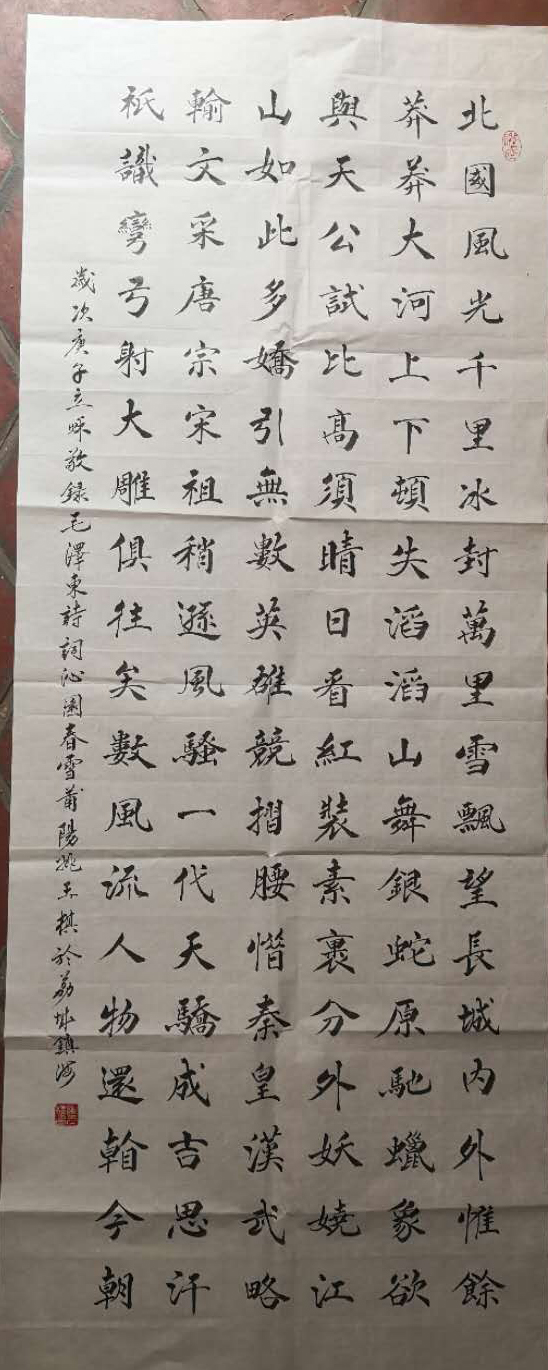 北國風光千里冰封萬里雪飄望長城内外惟餘
莽莽大河上下頓失滔滔山舞銀蛇原馳蠟象欲
與天公試比高須晴日看紅裝素裹分外妖嬈江
山如此多嬌引無數英雄競摺腰惜秦皇漢武略
輸文采唐宗宋祖稍遜風騷一代天驕成吉思汗
祇識彎弓射大雕俱往矣數風流人物還看今朝
歲次庚子立秋敬録毛澤東詩詞沁園春雪莆陽姚玉棋於荔城鎮海